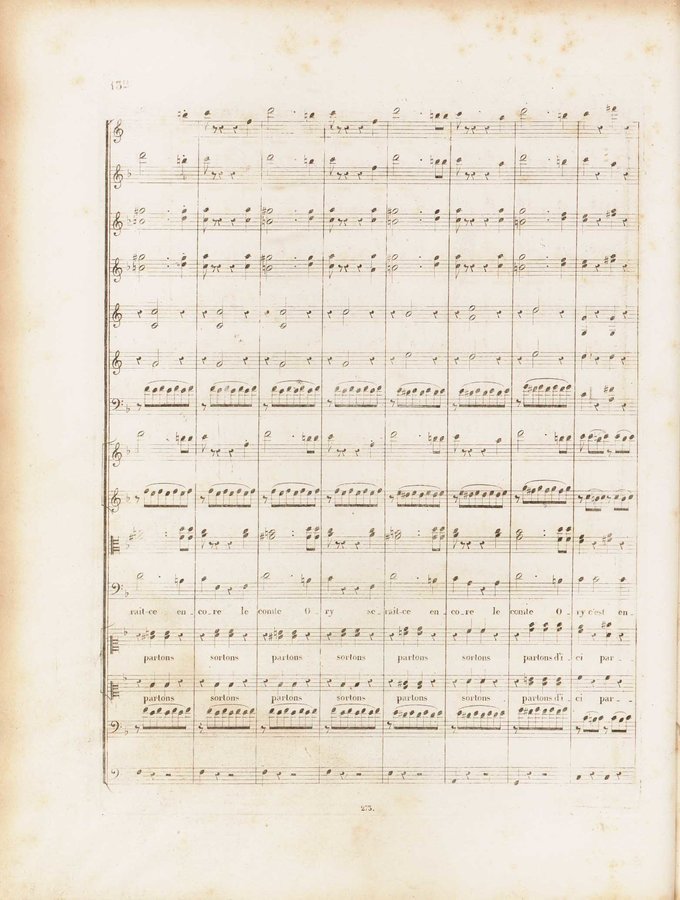 132
rait-ce en-co-re le comte O-ry se-rait-ce en-co-re le comte O-ry c'est en-
partons sortons partons sortons partons sortons partons d'i-ci par-
partons sortons partons sortons partons sortons partons d'i-ci par-
273.